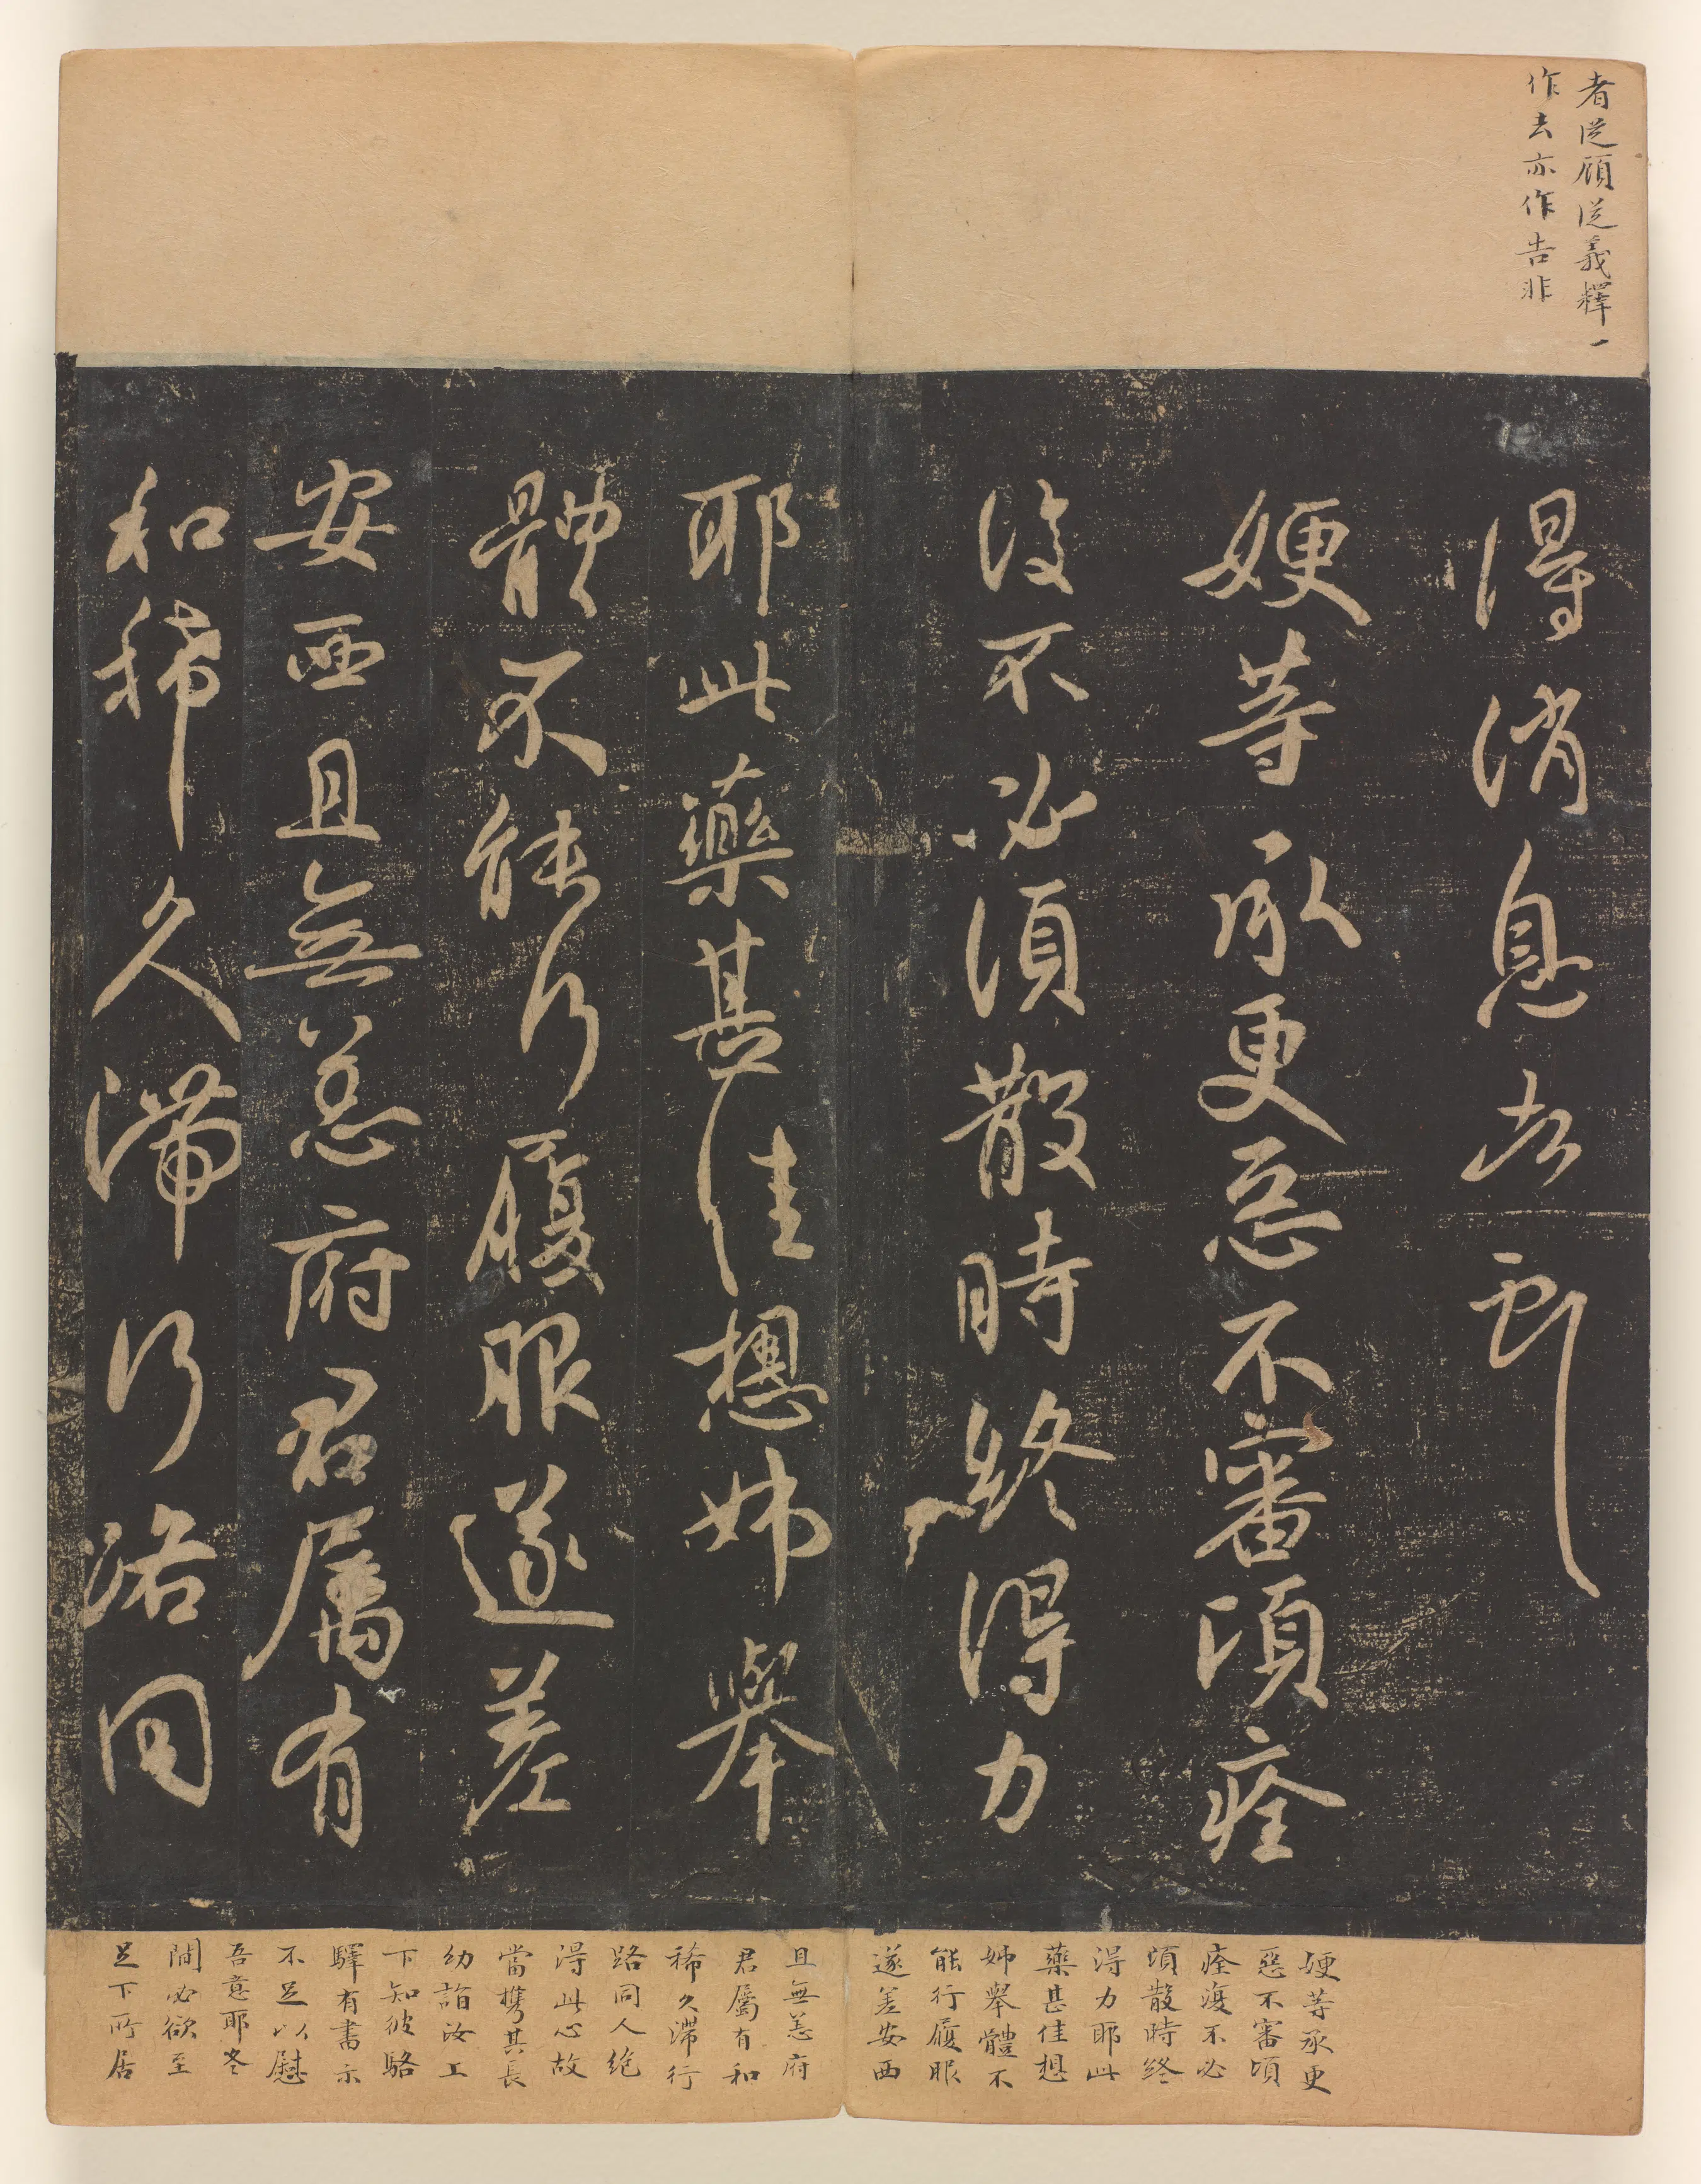 者従顧従義釋一
作去亦作告非
得消息者四
娚等承更惡不審頃痊
復不必須散時終得力
耶此藥甚佳想姊舉
體不能行履眼遂差
安西且無恙府君屬有
和稀久滯行洛同
娚等承更
惡不審頃
痊復不必
須散時終
得力耶此
藥甚佳想
姊舉體不
能行履眼
遂差安西
且無恙府
君屬有和
稀久滯行
路同人絶
得此心故
當携其長
幼詣汝工
下知彼駱
驛有書示
不足以慰
吾意耶冬
間必欲至
足下所居